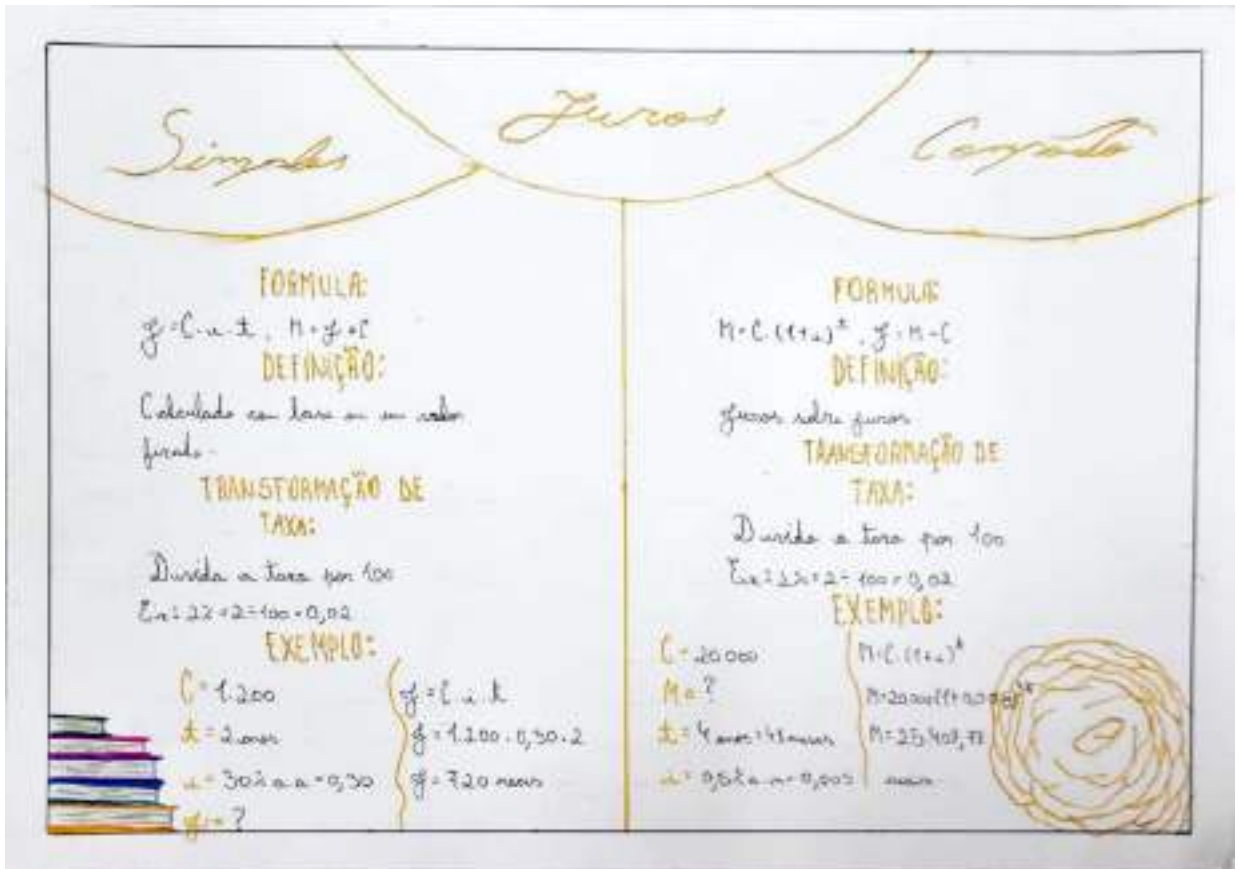 Juros
Simples
FORMULA:
J = C.i.t, M = J + C
DEFINIÇÃO:
Calculado com base em um valor
fixado.
TRANSFORMAÇÃO DE
TAXA:
Divida a taxa por 100
Ex: 2% = 2 ÷ 100 = 0,02
EXEMPLO:
C = 1.200
t = 2 anos
i = 30% a.a = 0,30
J = ?
J = C.i.t
J = 1.200.0,30.2
J = 720 reais
Composto
FORMULA:
M = C.(1+i)^t, J = M - C
DEFINIÇÃO:
Juros sobre juros
TRANSFORMAÇÃO DE
TAXA:
Divida a taxa por 100
Ex: 2% = 2 ÷ 100 = 0,02
EXEMPLO:
C = 20 000
M = ?
t = 4 anos = 48 meses
i = 0,5% a.m = 0,005
M = C.(1+i)^t
M = 20 000(1+
M = 25.409,78
reais.